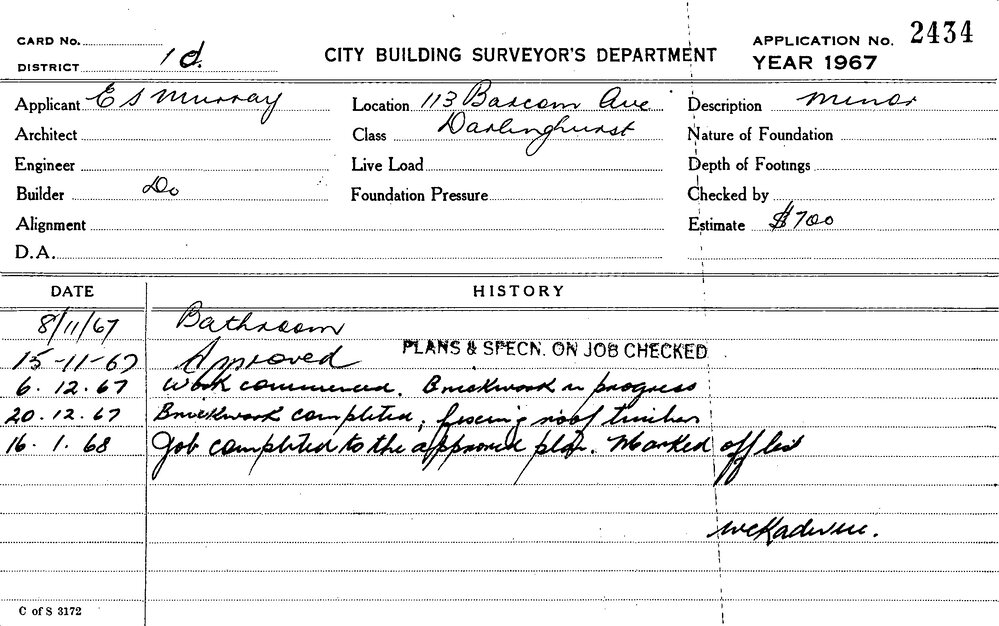 CARD No.
DISTRICT 1d.
CITY BUILDING SURVEYOR'S DEPARTMENT
APPLICATION No. 2434
YEAR 1967
Applicant E S Murray
Location 113 Barcom Ave
Description minor
Architect
Class Darlinghurst
Nature of Foundation
Engineer
Live Load
Depth of Footings
Builder Do
Foundation Pressure
Checked by
Alignment
Estimate $700
D.A.
DATE HISTORY
8/11/67 Bathroom
15-11-67 Approved PLANS & SPECN. ON JOB CHECKED
6.12.67 Work commenced. Brickwork in progress
20.12.67 Brickwork completed, roof timber
16.1.68 Job completed to the approved plan. Marked off list
C of S 3172